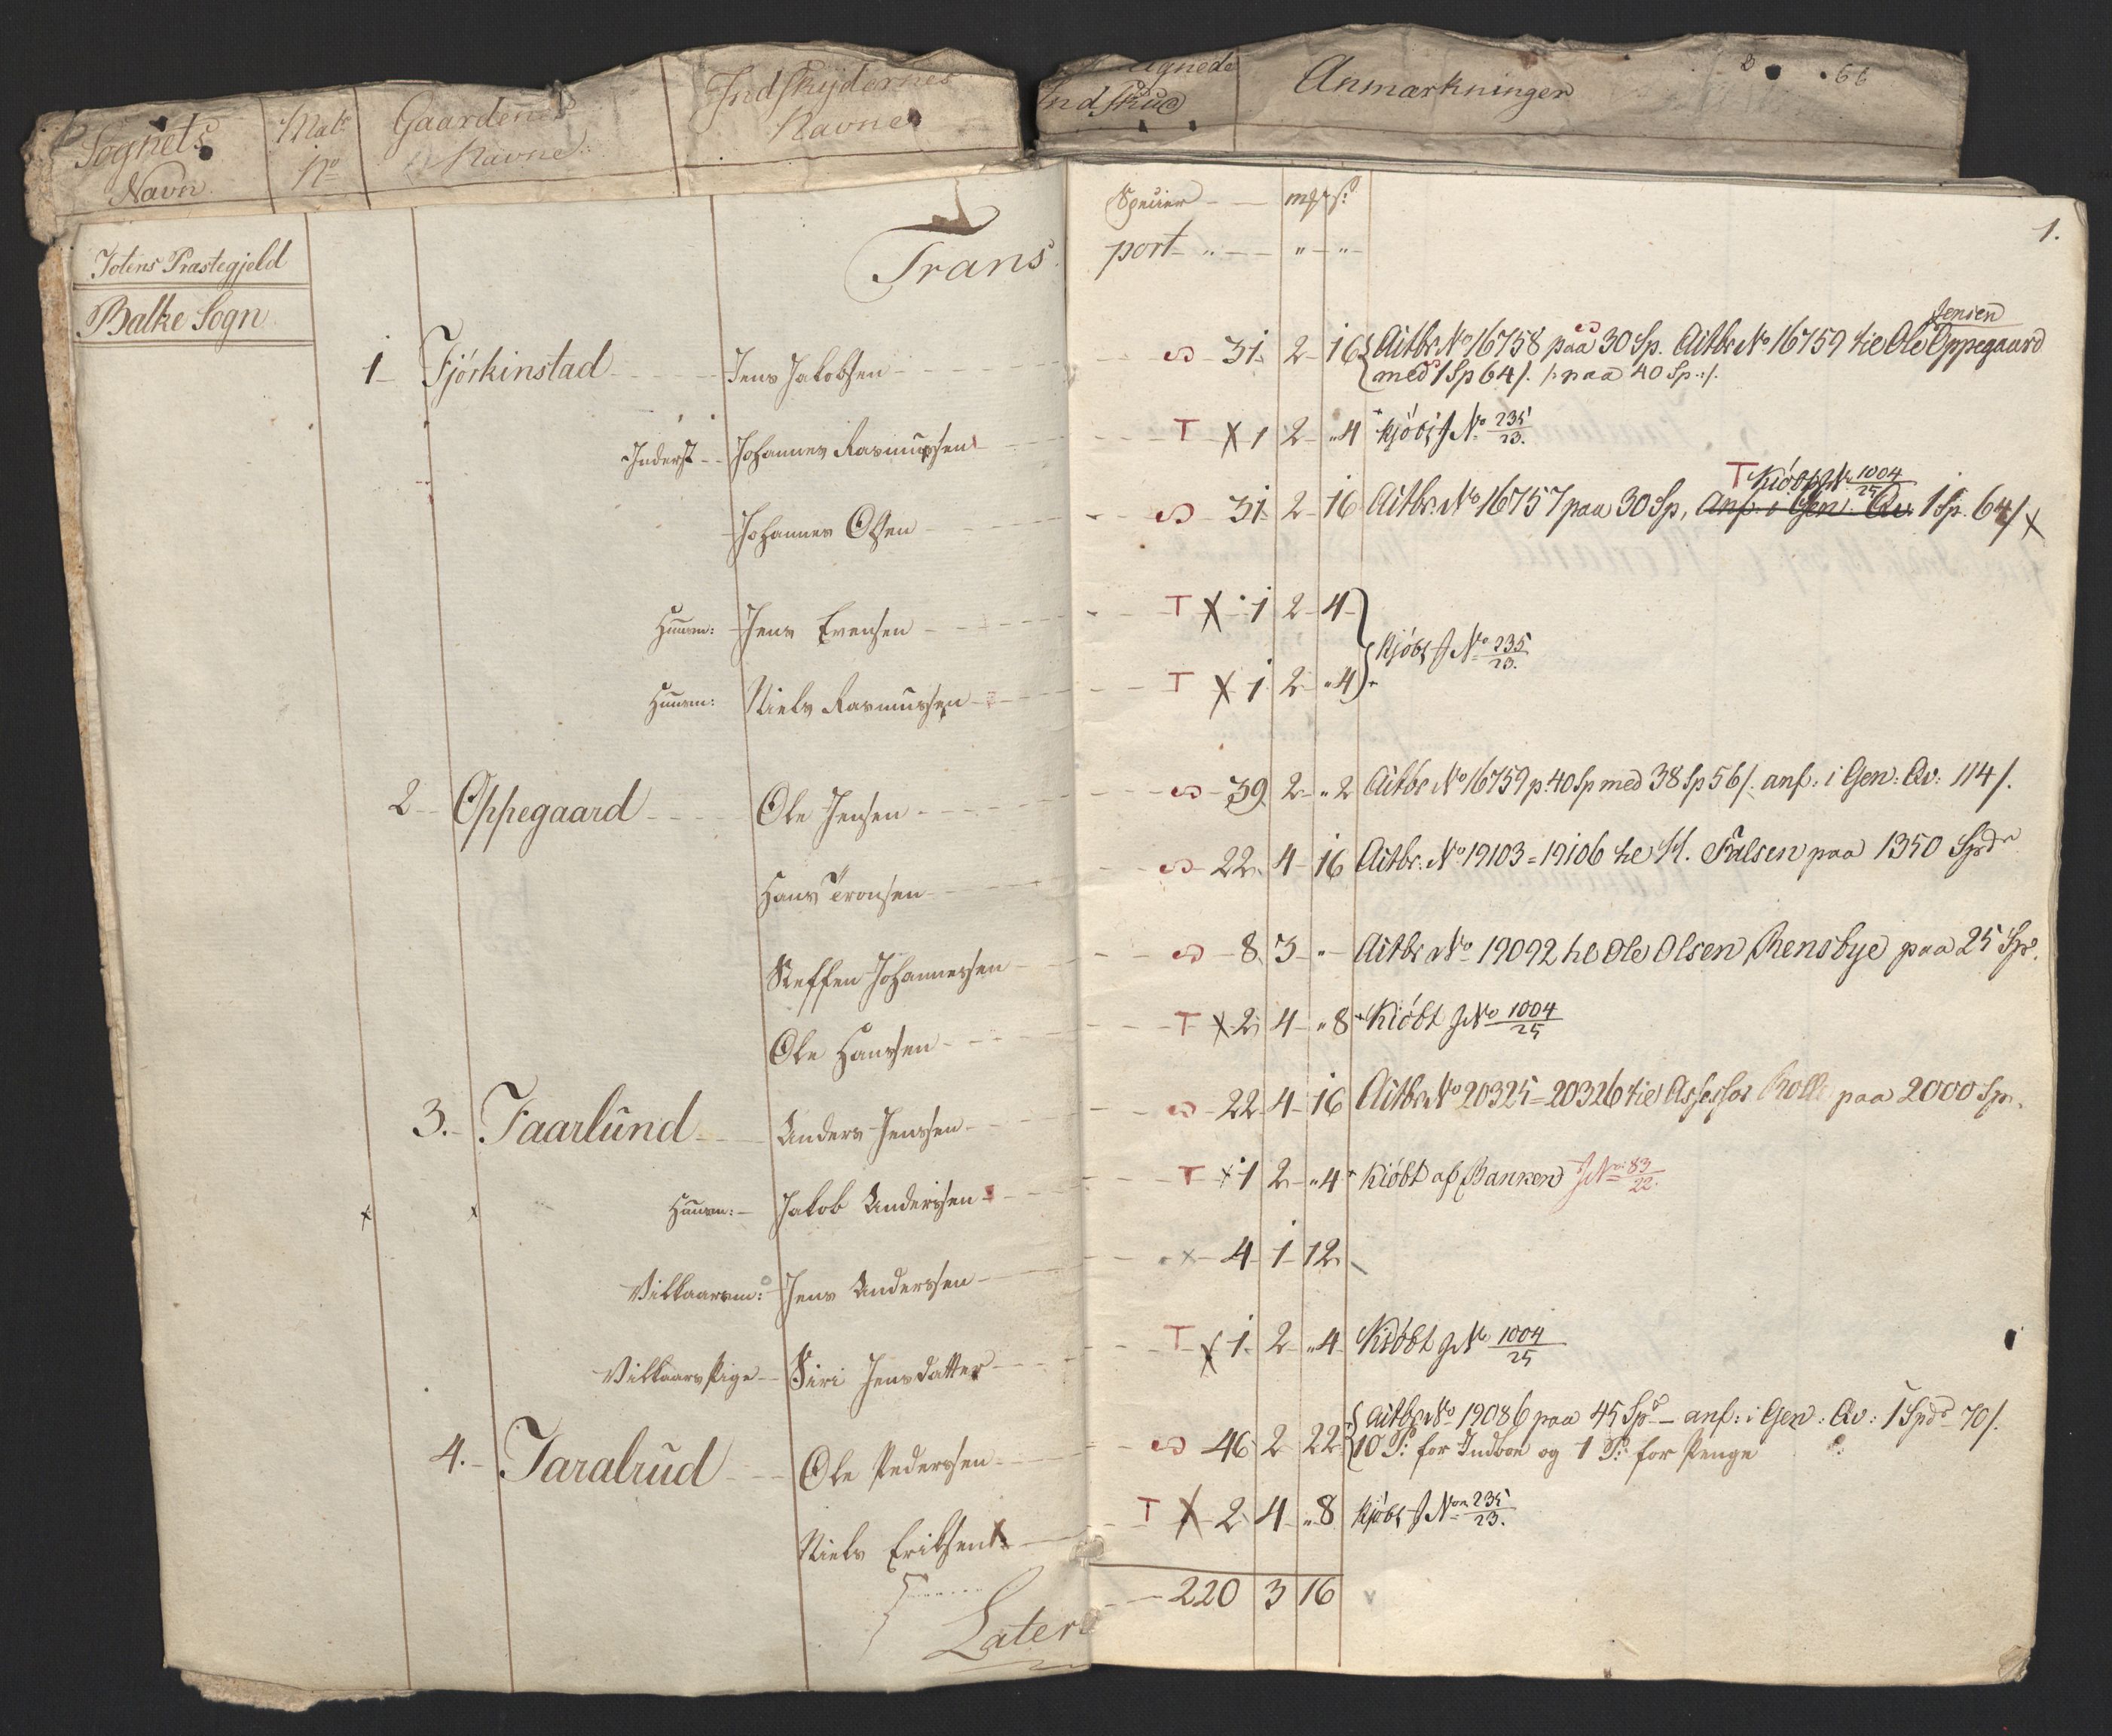 Sognets Navn
Matr No
Gaardenes Navne
Indskydernes Navne
Indskud
Anmærkninger
66
1.
Totens Præstegjeld
Balke Sogn
Specier mk s:
Transport " " "
1 Fjörkinstad Jens Jakobsen 31 2 16 Actbr. No 16758 paa 30 Sp. Actbr No 16759 til Ole Jensen Oppegaard
med 1 Sp 64 s. /: paa 40 Sp :/.
Inderst Johannes Rasmussen T X 1 2 "4 Kjöbt J No 235/23.
Johannes Olsen 31 2 16 Actbr. No 16757 paa 30 Sp, anf. i Gen. Qv. T Kiöbt J No 1004/25 1 Sp. 64 s X
Huusm: Jens Evensen T X 1 2 4
Kjöbt J No 235/23.
Huusm: Niels Rasmussen T X 1 2 "4
2 Oppegaard Ole Jensen 39 2 "2 Actbr No 16759 p. 40 Sp med 38 Sp 56 s. anf: i Gen: Qv: 114 s.
Hans Tronsen 22 4 16 Actbr. No 19103=19106 til H. Falsen paa 1350 Spdr
Steffen Johannessen 8 3 " Actbr No 19092 til Ole Olsen Rensbye paa 25 Sp.
Ole Hanssen T X 2 4 "8 Kiöbt J No 1004/25
3. Faarlund Anders Jenssen 22 4 16 Actbr No 20325=20326 til Assessor Rolle paa 2000 Sp.
Huusm: Jakob Anderssen T X 1 2 "4 Kiöbt af Banken J No 83/22.
Vilkaarsm: Jens Anderssen x 4 1 12
Vilkaars Pige Siri Jensdatter T X 1 2 "4 Kiöbt J No 1004/25
4. Taralrud Ole Pederssen 46 2 22 Actbr No 19086 paa 45 Spd – anf: i Gen: Qv: 1 Spdr 70 s.
10 P: for Indboe og 1 P: for Penge
Niels Eriksen X T X 2 4 "8 Kjöbt J No 235/23.
Latere 220 3 16